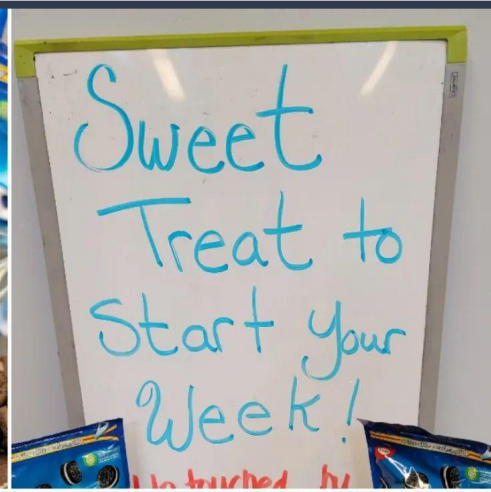 Sweet
Treat to
Start Your
Week!